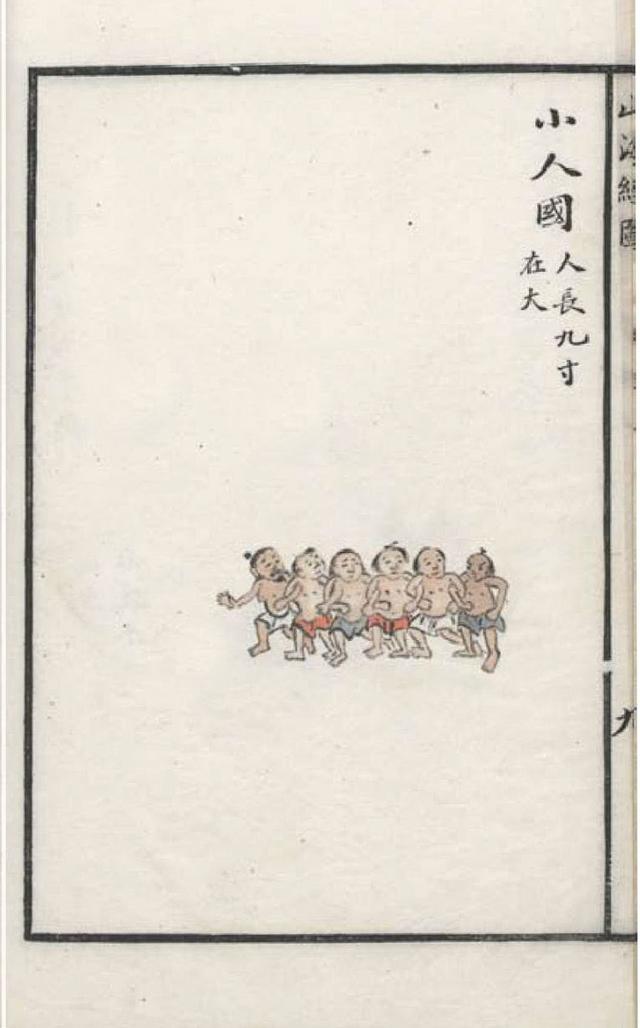 山海經圖
九
小人國
人長九寸
在大